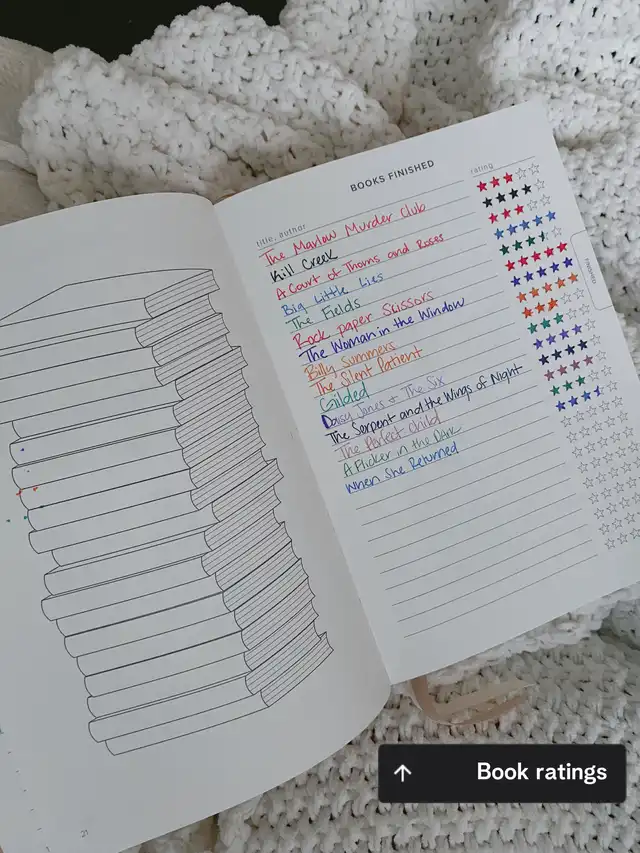 BOOKS FINISHED
title, author
rating
The Marlow Murder Club
Kill Creek
A Court of Thorns and Roses
Big Little Lies
The Fields
Rock paper Scissors
The Woman in the Window
Billy Summers
The Silent Patient
Gilded
Daisy Jones & The Six
The Serpent and the Wings of Night
The Perfect Child
A Flicker in the Dark
When She Returned
FINISHED
21
Book ratings